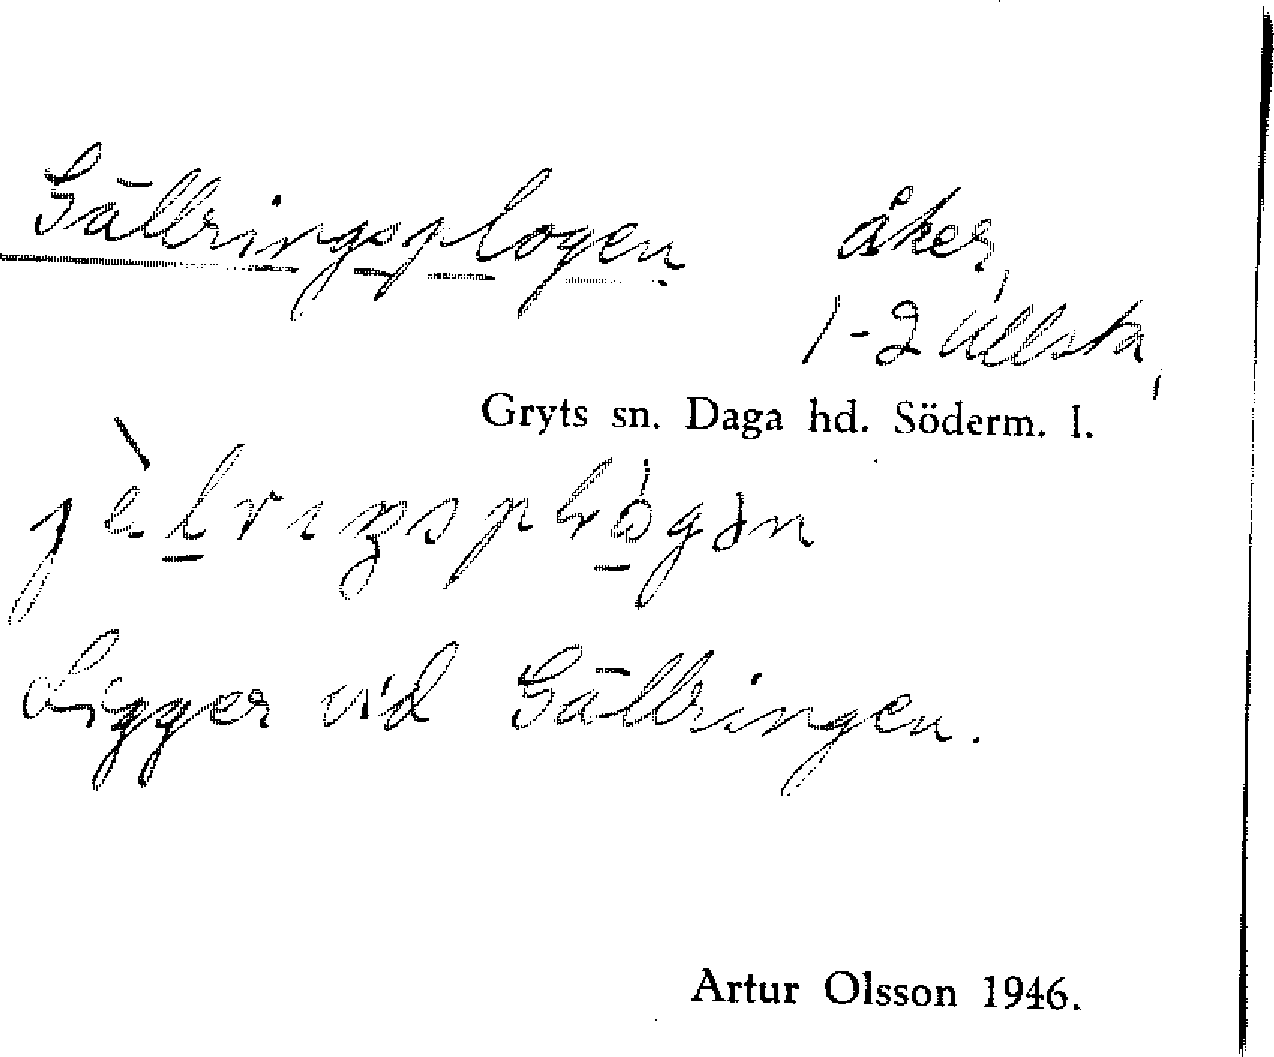 Gällringsplogen åker,
1-2 Ullsta,
Gryts sn. Daga hd. Söderm. l.
Ligger vid Gällringen.
Artur Olsson 1946.